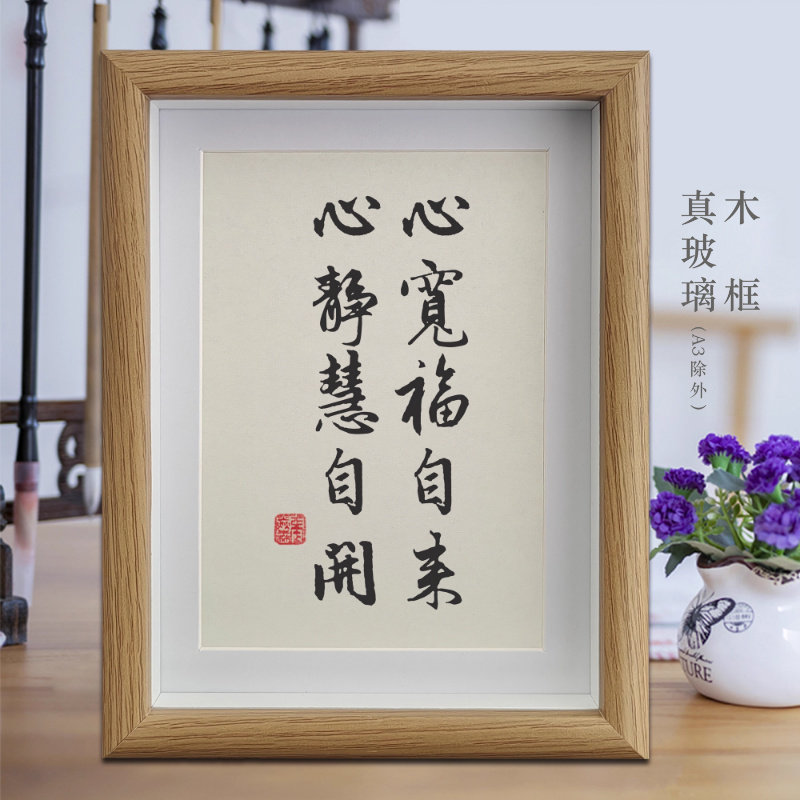 心寬福自来
心靜慧自開
木框
真玻璃(A3除外)
TURE